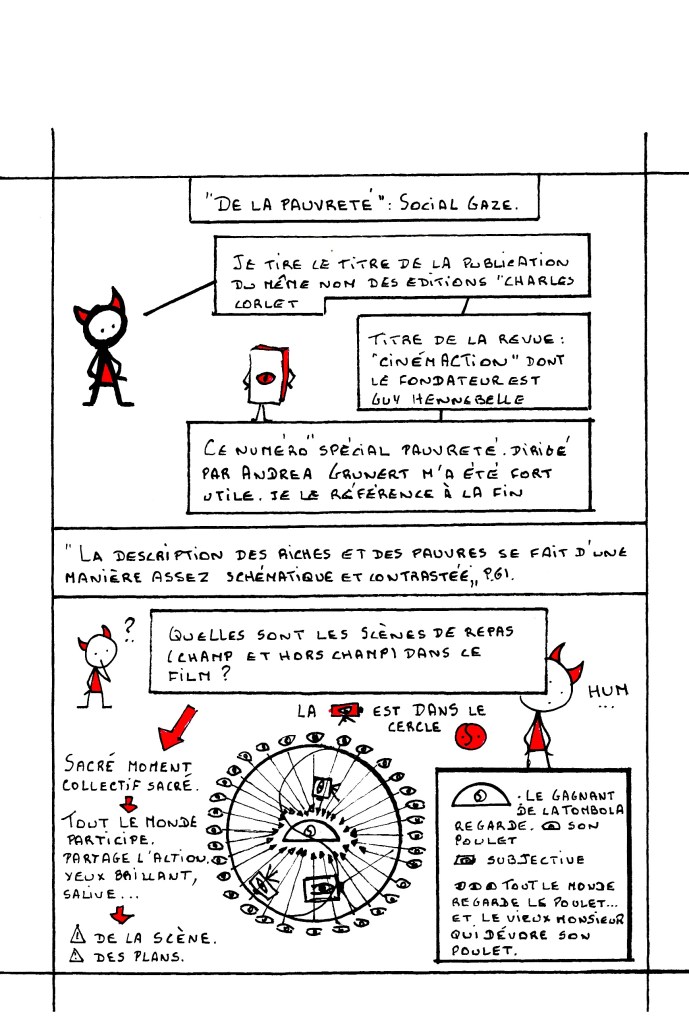 "DE LA PAUVRETÉ": SOCIAL GAZE.
JE TIRE LE TITRE DE LA PUBLICATION
DU MÊME NON DES EDITIONS "CHARLES
CORLET
TITRE DE LA REVUE :
"CINÉMACTION" DONT
LE FONDATEUR EST
GUY HENNEBELLE
CE NUMÉRO "SPÉCIAL PAUVRETÉ. DIRIGÉ
PAR ANDREA GRUNERT M'A ÉTÉ FORT
UTILE. JE LE RÉFÉRENCE À LA FIN
"LA DESCRIPTION DES RICHES ET DES PAUVRES SE FAIT D'UNE
MANIÈRE ASSEZ SCHÉMATIQUE ET CONTRASTÉE„ P.61.
?
QUELLES SONT LES SCÈNES DE REPAS
(CHAMP ET HORS CHAMP) DANS CE
FILM ?
HUM
...
LA EST DANS LE
CERCLE
SACRÉ MOMENT
COLLECTIF SACRÉ.
TOUT LE MONDE
PARTICIPE.
PARTAGE L'ACTION.
YEUX BRILLANT,
SALIVE...
DE LA SCÈNE.
DES PLANS.
. LE GAGNANT
DE LA TOMBOLA
REGARDE. SON
POULET
SUBJECTIVE
TOUT LE MONDE
REGARDE LE POULET...
ET LE VIEUX MONSIEUR
QUI DÉVORE SON
POULET.